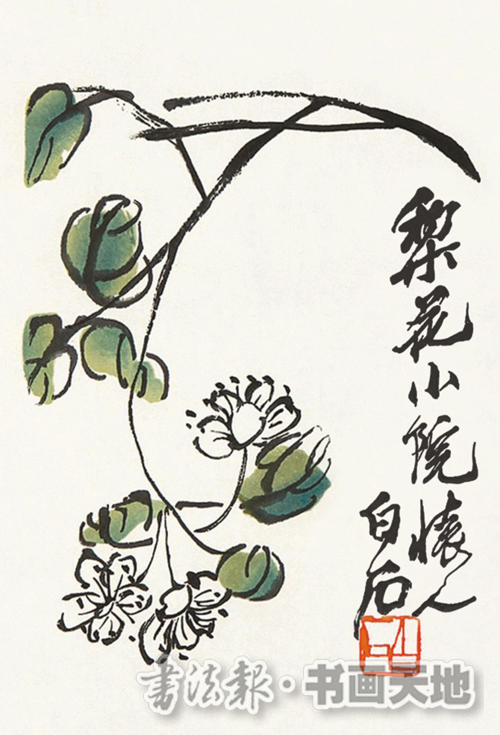 梨花小院懐人
白石
书法報·书画天地